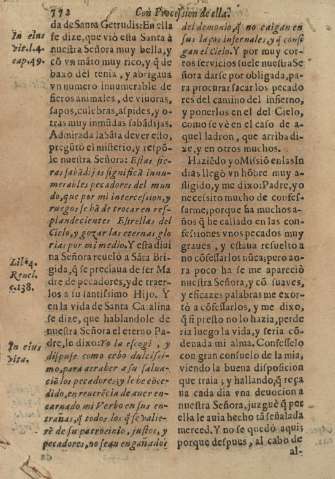 792 Con Procession de ella.
In eius
vit. l. 4.
cap. 49.
da de Santa Getrudis: En ella
se dize, que viò esta Santa à
nuestra Señora muy bella, y
cõ vn mãto muy rico, y q̃ de
baxo del tenia, y abrigaua
vn numero innumerable de
fieros animales, de viuoras,
sapos, culebras, aspides, y o-
tras muy inmũdas sabãdijas.
Admirada la Sãta de ver esto,
preguntò el misterio, y respõ-
le nuestra Señora: Estas fie-
ras sabãdijas significã innu-
merables pecadores del mun
do, que por mi intercession, y
ruegos se hã de trocar en res-
plandecientes Estrellas del
Cielo, y gozar las eternas glo
rias por mi medio. Y esta diui
na Señora reuelò a Sãta Bri
gida, q̃ se preciaua de ser Ma
dre de pecadores, y de traer-
los a su santissimo Hijo. Y
en la vida de Santa Catalina
se dize, que hablandole de
nuestra Señora el eterno Pa-
dre, le dixo: Yo la escogi, y
dispuse como cebo dulcissi-
mo, para atraher a su salua-
ciõ los pecadores; y le he cõce
dido, en reuerẽcia de auer en-
carnado mi Verbo en sus en-
trañas, q̃ todos los q̃ se valie-
rẽ de su patrocinio, justos, y
pecadores, no sean engañados
Lib. 4.
Reuel.
c. 138.
In eius
vita.
del demonio, q̃ no caigan en
sus lazos infernales, y q̃ consi
gan el Cielo. Y por muy cor-
tos seruicios suele nuestra Se
ñora darse por obligada, pa-
ra procurar sacar los pecado
res del camino del infierno,
y ponerlos en el del Cielo,
como se vè en el caso de a-
quel ladron, que arriba di-
xe, y en otros muchos.
Haziẽdo yo Missiõ en las In
dias llegò vn hõbre muy a-
fligido, y me dixo: Padre, yo
necessito mucho de confes-
sarme; porque ha muchos a-
ños q̃ he callado en las con-
fessiones vnos pecados muy
graues, y estaua resuelto a
no cõfessarlos nũca; pero ao-
ra poco ha se me apareciò
nuestra Señora, y cõ suaues,
y eficazes palabras me exor-
tò a cõfessarlos, y me dixo,
q̃ si presto no lo hazia, perde
ria luego la vida, y seria cõ-
denada mi alma. Confesselo
con gran consuelo de la mia,
viendo la buena disposicion
que traia; y hallando, q̃ reça
ua cada dia vna deuocion a
nuestra Señora, juzguè q̃ por
ella le auia hecho tã señalada
merced. Y no se quedò aqui;
porque despues, al cabo de
al-